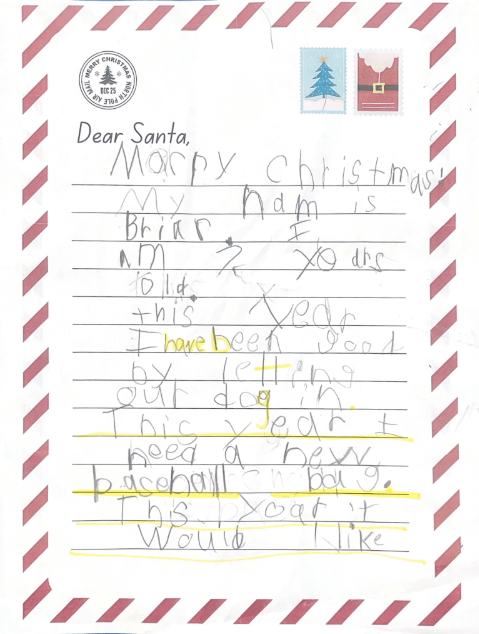 MERRY CHRISTMAS
DEC 25
NORTH POLE AIR MAIL
Dear Santa,
Marry Christmas!
My nam is
Briar. I
am 7 years
old.
this year
I have been good
by letting
our dog in.
This year I
need a new
baseball bag.
This year it
Would like